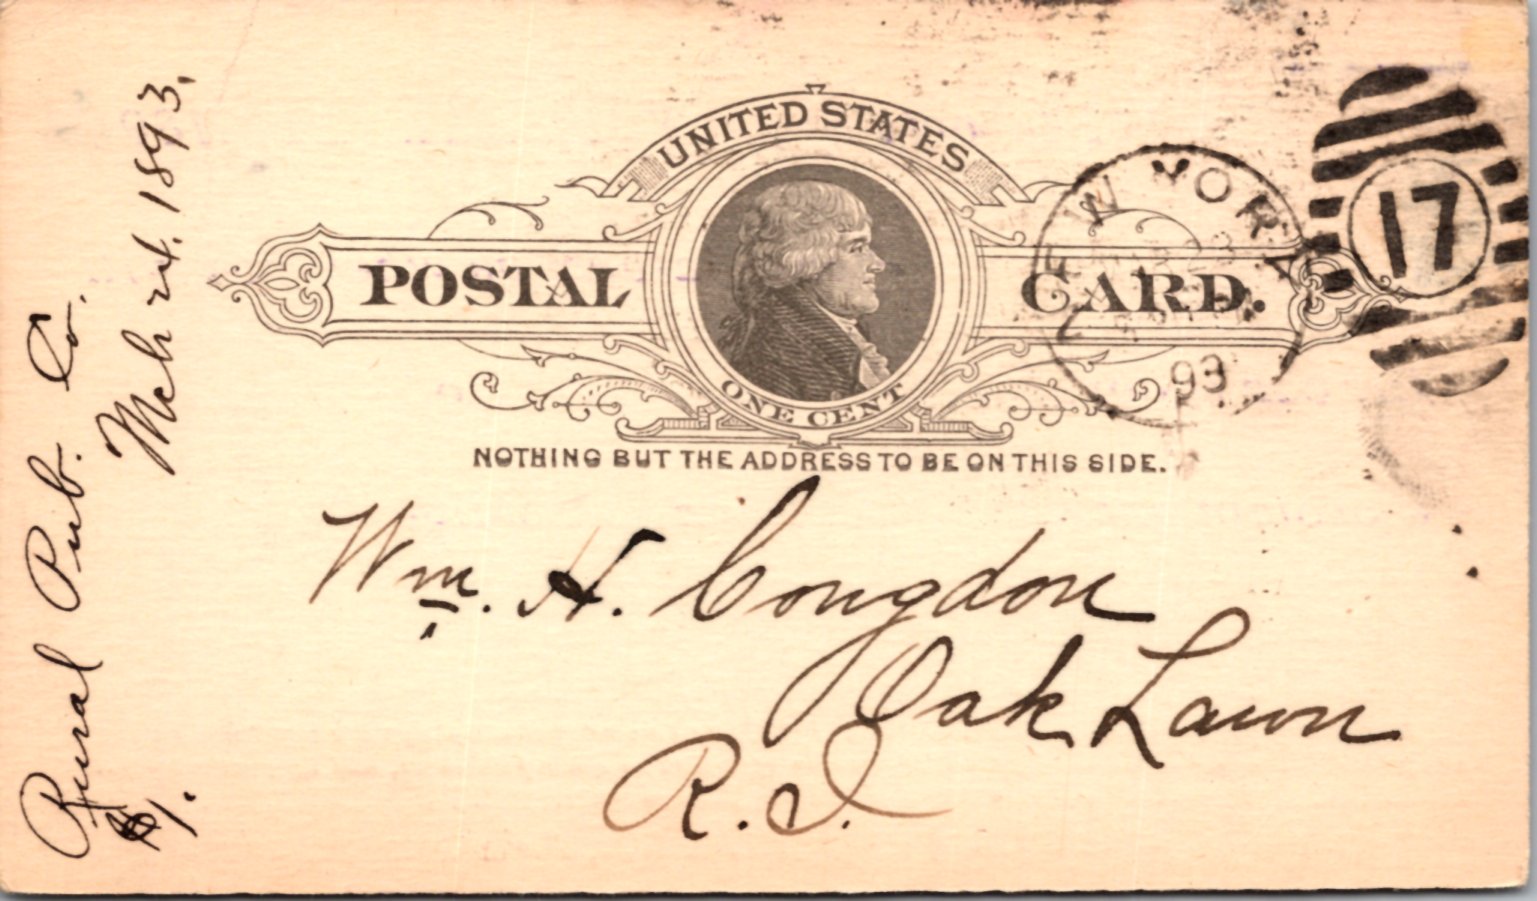 UNITED STATES
POSTAL CARD.
ONE CENT
NOTHING BUT THE ADDRESS TO BE ON THIS SIDE.
W YORK
93
17
Wm. H. Congdon
Oak Lawn
R.I.
Rural Pub. Co.
Mch 24. 1893.